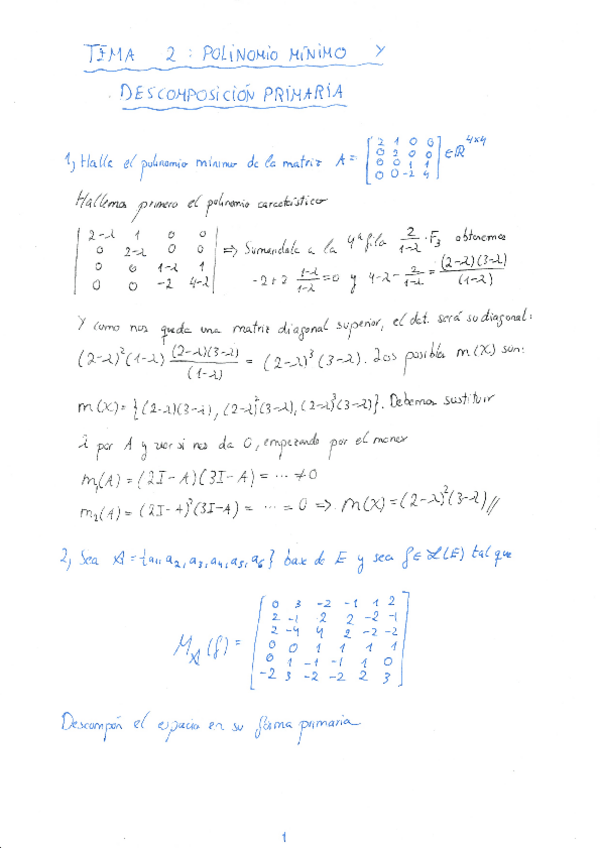 TEMA 2 : POLINOMIO MÍNIMO Y
DESCOMPOSICIÓN PRIMARIA
1, Halla el polinomio mínimo de la matriz A = [2 1 0 0
0 2 0 0
0 0 1 1
0 0 -2 4] ∈ ℝ^4x4
Hallemos primero el polinomio característico
|2-λ 1 0 0|
|0 2-λ 0 0|
|0 0 1-λ 1|
|0 0 -2 4-λ|
⇒ Sumandole a la 4ª fila 2/(1-λ) · F3 obtenemos
-2+2 (1-λ)/(1-λ) = 0 y 4-λ- 2/(1-λ) = (2-λ)(3-λ)/(1-λ)
Y como nos queda una matriz diagonal superior, el det. será su diagonal:
(2-λ)^2 (1-λ) (2-λ)(3-λ)/(1-λ) = (2-λ)^3 (3-λ). Los posibles m(X) son:
m(X) = {(2-λ)(3-λ), (2-λ)^2(3-λ), (2-λ)^3(3-λ)}. Debemos sustituir
λ por A y ver si nos da 0, empezando por el menor
m1(A) = (2I-A)(3I-A) = ... ≠ 0
m2(A) = (2I-A)^2(3I-A) = ... = 0 ⇒ m(X) = (2-λ)^2(3-λ)//
2, Sea A = {a1, a2, a3, a4, a5, a6} base de E y sea f ∈ L(E) tal que
M_A(f) = [0 3 -2 -1 1 2
2 -1 2 2 -2 -1
2 -4 4 2 -2 -2
0 0 1 1 1 1
0 1 -1 -1 1 0
-2 3 -2 -2 2 3]
Descompón el espacio en su forma primaria
1